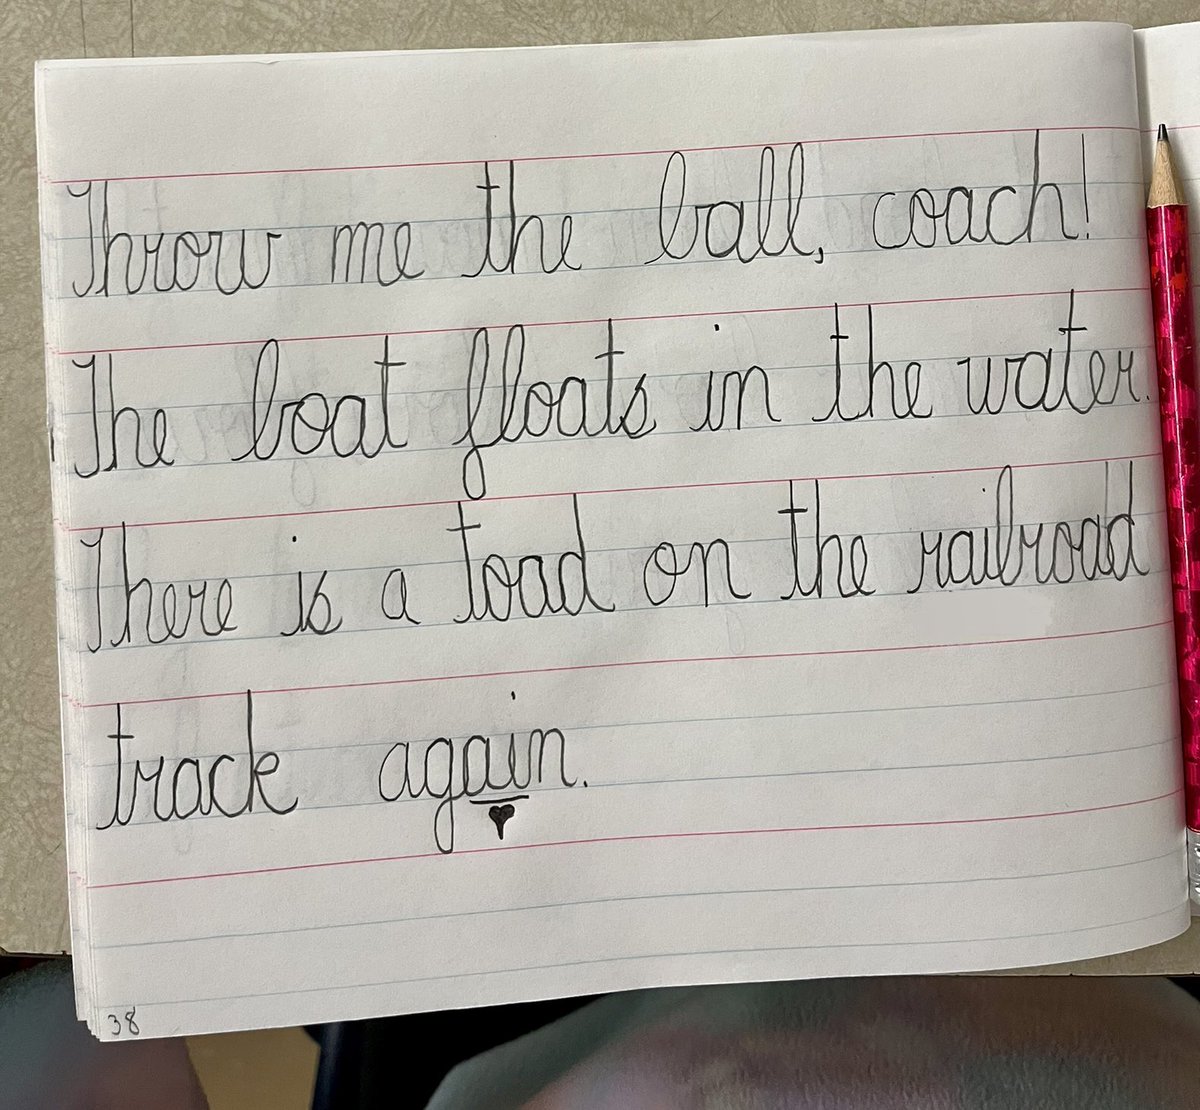 Throw me the ball, coach!
The boat floats in the water.
There is a toad on the railroad
track again.
38